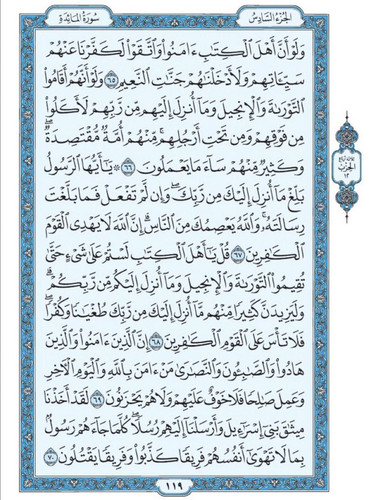 الجزء السادس
سورة المائدة
وَلَوۡ أَنَّ أَهۡلَ ٱلۡكِتَٰبِ ءَامَنُواْ وَٱتَّقَوۡاْ لَكَفَّرۡنَا عَنۡهُمۡ
سَيِّـَٔاتِهِمۡ وَلَأَدۡخَلۡنَٰهُمۡ جَنَّٰتِ ٱلنَّعِيمِ ٦٥ وَلَوۡ أَنَّهُمۡ أَقَامُواْ
ٱلتَّوۡرَىٰةَ وَٱلۡإِنجِيلَ وَمَآ أُنزِلَ إِلَيۡهِم مِّن رَّبِّهِمۡ لَأَكَلُواْ
مِن فَوۡقِهِمۡ وَمِن تَحۡتِ أَرۡجُلِهِمۚ مِّنۡهُمۡ أُمَّةٞ مُّقۡتَصِدَةٞۖ
وَكَثِيرٞ مِّنۡهُمۡ سَآءَ مَا يَعۡمَلُونَ ٦٦ ۞ يَٰٓأَيُّهَا ٱلرَّسُولُ
بَلِّغۡ مَآ أُنزِلَ إِلَيۡكَ مِن رَّبِّكَۖ وَإِن لَّمۡ تَفۡعَلۡ فَمَا بَلَّغۡتَ
رِسَالَتَهُۥۚ وَٱللَّهُ يَعۡصِمُكَ مِنَ ٱلنَّاسِۗ إِنَّ ٱللَّهَ لَا يَهۡدِي ٱلۡقَوۡمَ
ٱلۡكَٰفِرِينَ ٦٧ قُلۡ يَٰٓأَهۡلَ ٱلۡكِتَٰبِ لَسۡتُمۡ عَلَىٰ شَيۡءٍ حَتَّىٰ
تُقِيمُواْ ٱلتَّوۡرَىٰةَ وَٱلۡإِنجِيلَ وَمَآ أُنزِلَ إِلَيۡكُم مِّن رَّبِّكُمۡۗ
وَلَيَزِيدَنَّ كَثِيرٗا مِّنۡهُم مَّآ أُنزِلَ إِلَيۡكَ مِن رَّبِّكَ طُغۡيَٰنٗا وَكُفۡرٗاۖ
فَلَا تَأۡسَ عَلَى ٱلۡقَوۡمِ ٱلۡكَٰفِرِينَ ٦٨ إِنَّ ٱلَّذِينَ ءَامَنُواْ وَٱلَّذِينَ
هَادُواْ وَٱلصَّٰبِـُٔونَ وَٱلنَّصَٰرَىٰ مَنۡ ءَامَنَ بِٱللَّهِ وَٱلۡيَوۡمِ ٱلۡأٓخِرِ
وَعَمِلَ صَٰلِحٗا فَلَا خَوۡفٌ عَلَيۡهِمۡ وَلَا هُمۡ يَحۡزَنُونَ ٦٩ لَقَدۡ أَخَذۡنَا
مِيثَٰقَ بَنِيٓ إِسۡرَٰٓءِيلَ وَأَرۡسَلۡنَآ إِلَيۡهِمۡ رُسُلٗاۖ كُلَّمَا جَآءَهُمۡ رَسُولُۢ
بِمَا لَا تَهۡوَىٰٓ أَنفُسُهُمۡ فَرِيقٗا كَذَّبُواْ وَفَرِيقٗا يَقۡتُلُونَ ٧٠
الحزب
١٢
١١٩